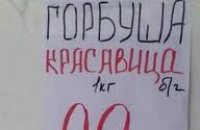 ГОРБУША
КРАСАВИЦА
1кг б/г